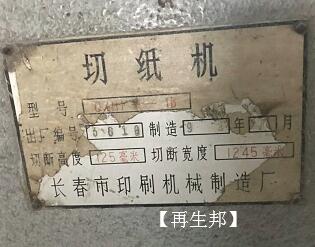 切纸机
型号
出厂编号 5010 制造 9 年 月
切断高度 125毫米 切断宽度 1245毫米
长春市印刷机械制造厂
【再生邦】